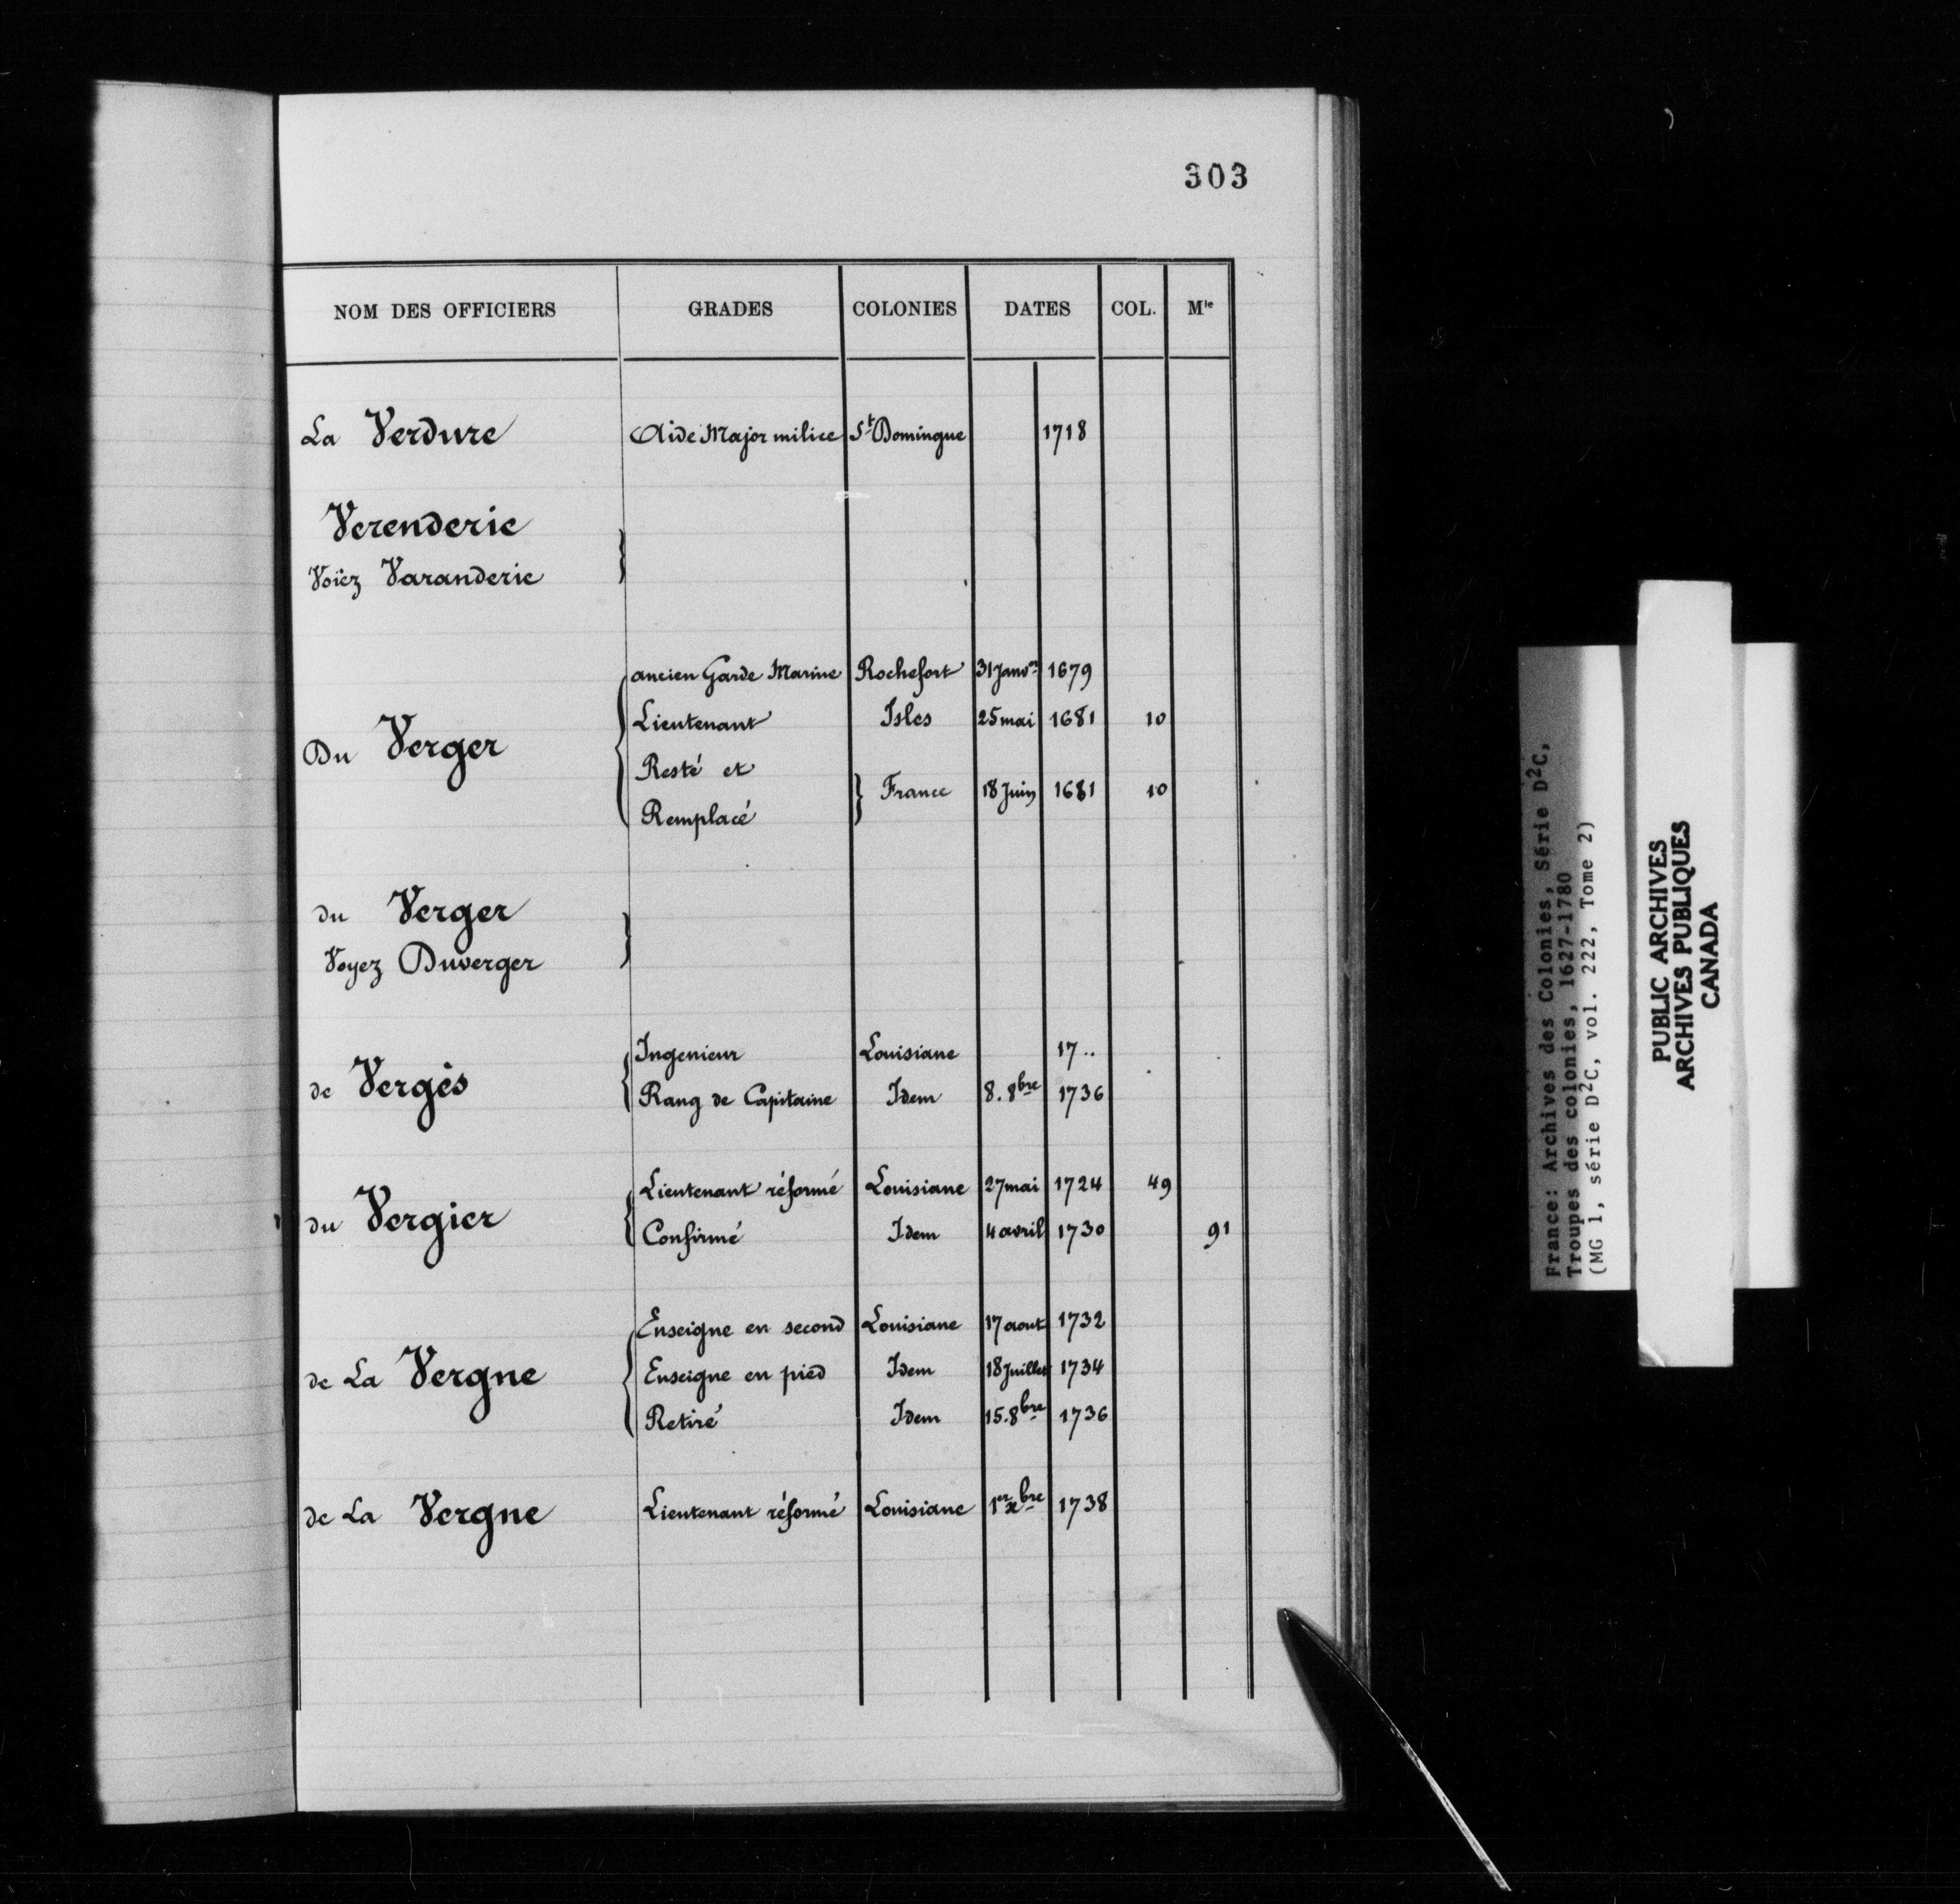 303
NOM DES OFFICIERS GRADES COLONIES DATES COL. Mle
La Verdure Aide Major milice St Domingue 1718
Verenderie
Voiez Varanderie
ancien Garde Marine Rochefort 31 Janver 1679
Lieutenant Isles 25 mai 1681 10
Du Verger
Resté et
France 18 Juin 1681 10
Remplacé
du Verger
Voyez Duverger
Ingenieur Louisiane 17..
de Vergés
Rang de Capitaine Idem 8. 8bre 1736
Lieutenant réformé Louisiane 27 mai 1724 49
du Vergier
Confirmé Idem 4 avril 1730 91
Enseigne en second Louisiane 17 aout 1732
de La Vergne Enseigne en pied Idem 18 Juillet 1734
Retiré Idem 15. 8bre 1736
de La Vergne Lieutenant réformé Louisiane 1er xbre 1738
France: Archives des Colonies, Série D2C,
Troupes des colonies, 1627-1780
(MG 1, série D2C, vol. 222, Tome 2)
PUBLIC ARCHIVES
ARCHIVES PUBLIQUES
CANADA